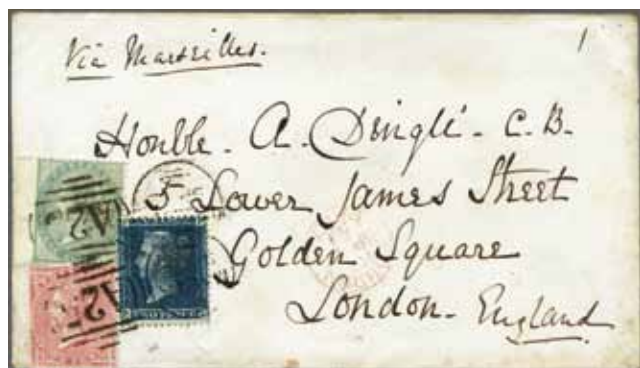 Via Marseilles.
1
Honble. A. Dingli. C.B.
5 Lower James Street
Golden Square
London. England
A25
A25